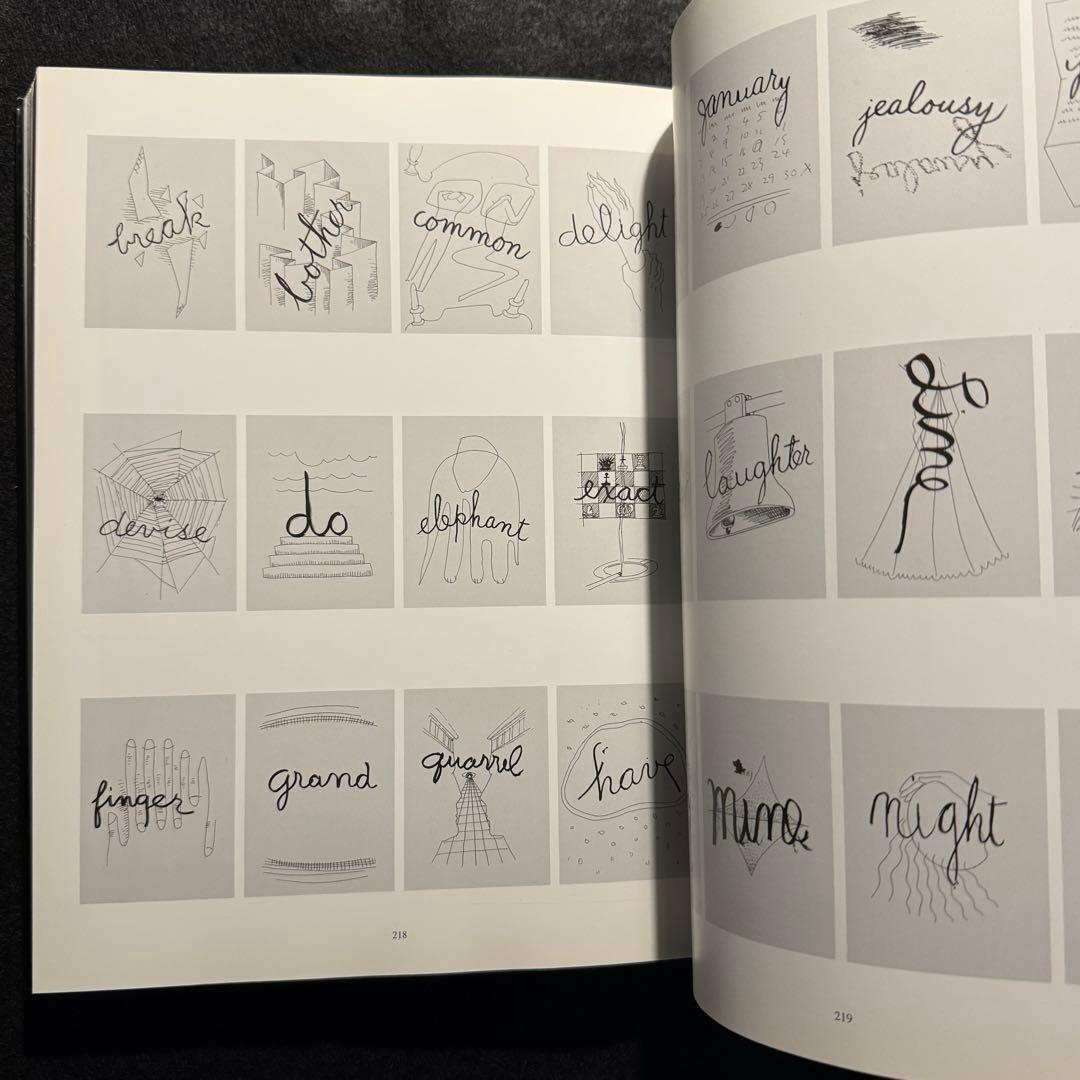 break
bother
common
delight
devise
do
elephant
exact
finger
grand
quarrel
have
218
january
jealousy
laughter
mine
night
219